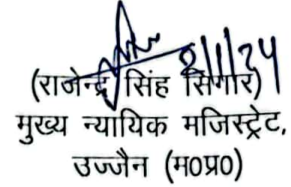 2/1/24
(राजेन्द्र सिंह सिंगार)
मुख्य न्यायिक मजिस्ट्रेट,
उज्जैन (म०प्र०)